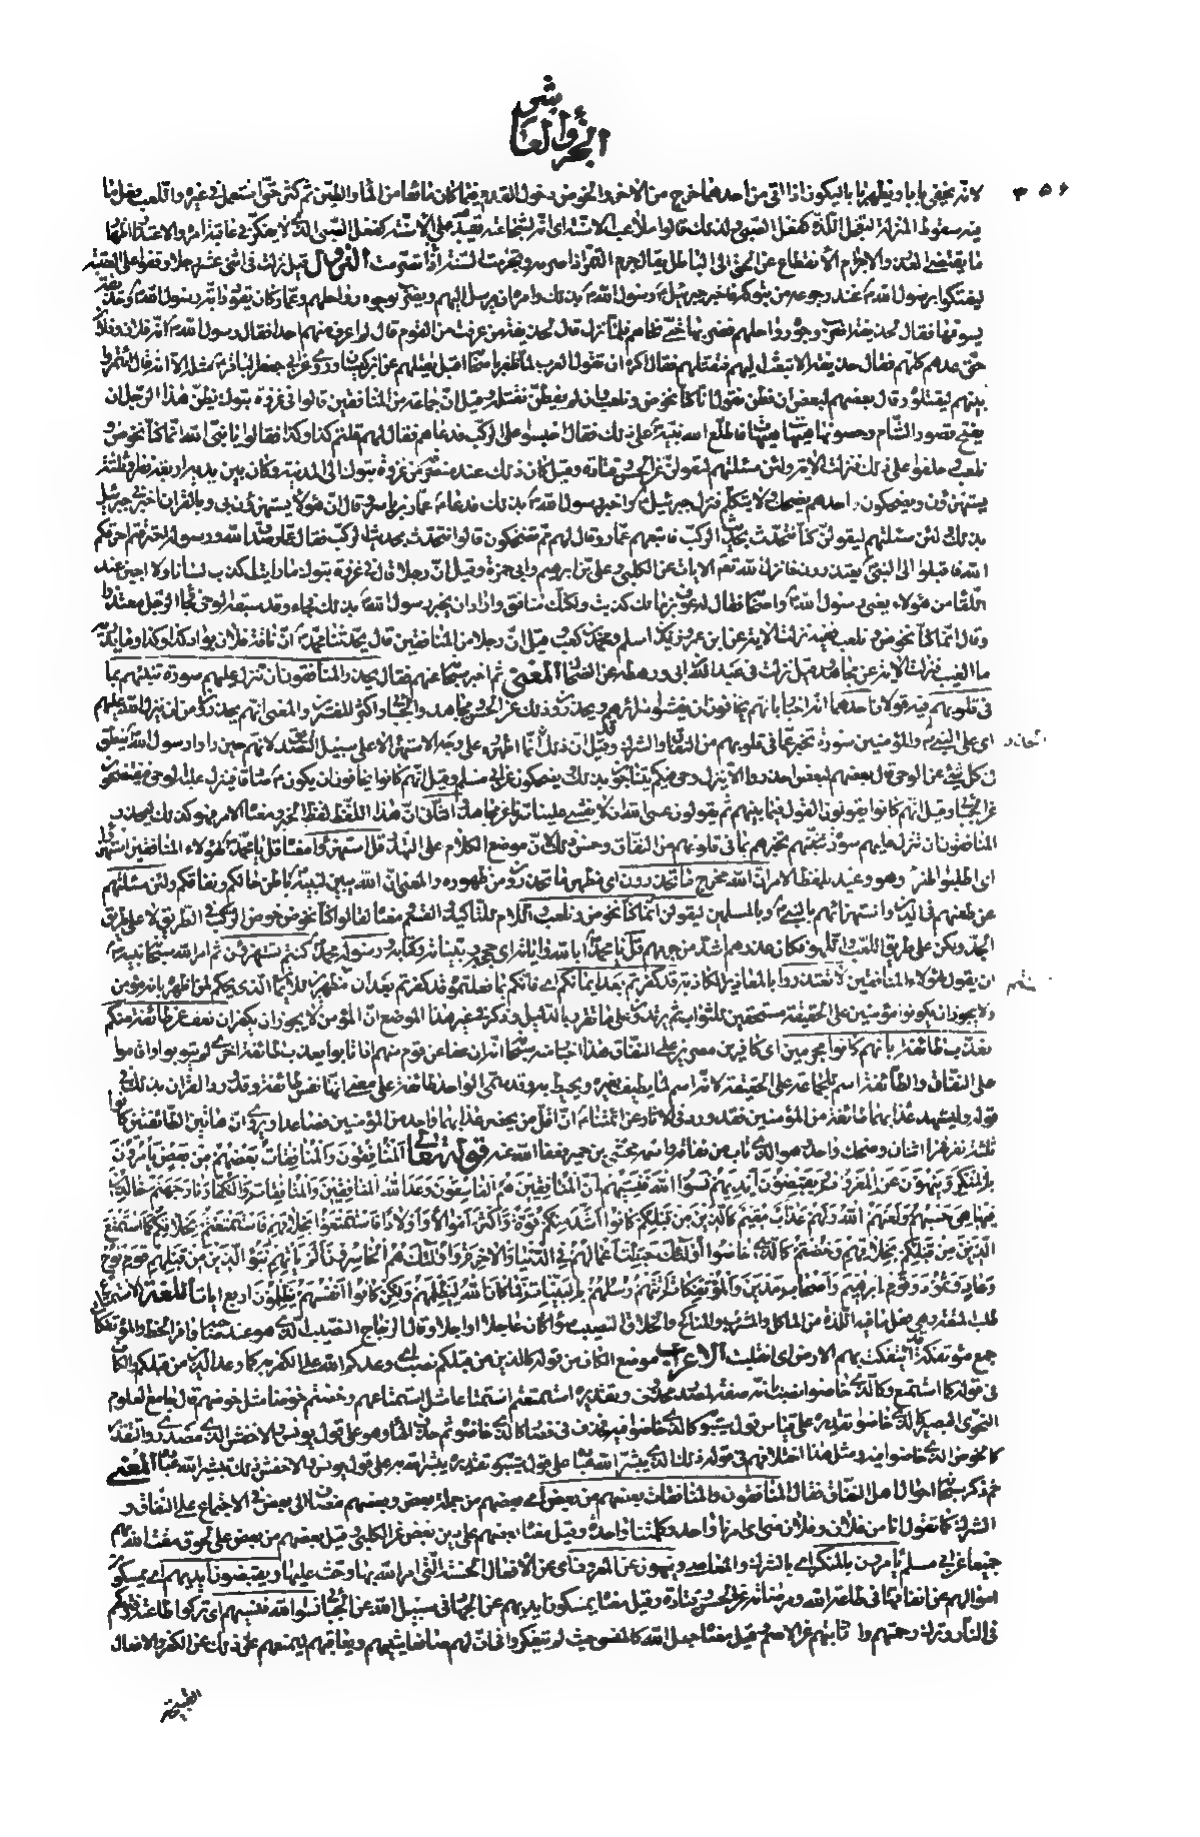 الجزؤ العاشر
٣٥٦
فيه سقوط المنزلة لتحمل الذلة كفعل الصبي ولذلك قالوا ملاعب الاسنة اى انه لشجاعته يقصد على الاسنة كفعل الصبي الذى لا يفكر في عاقبة امره والاعتذار اظهار
ما يقتضى العذر والاجرام الانقطاع عن الحق الى الباطل يقال جرم الثمر اذا صرمه وتجرمت السنة اذا تصرمت النزول قيل نزلت في اثنى عشر رجلا وقفوا على العقبة
ليفتكوا برسول الله عند رجوعه من تبوك فاخبر جبرئيل رسول الله بذلك وامره ان يرسل اليهم ويضرب وجوه رواحلهم وعمار كان يقود دابة رسول الله وحذيفة
يسوقها فقال لحذيفة اضرب وجوه رواحلهم فضربها حتى نحاهم فلما نزل قال لحذيفة من عرفت من القوم قال لم اعرف منهم احدا فقال رسول الله انه فلان وفلان
حتى عدهم كلهم فقال حذيفة الا تبعث اليهم فتقتلهم فقال اكره ان تقول العرب لما ظفر باصحابه اقبل يقتلهم عن ابن كيسان وروى عن ابى جعفر الباقر مثله الا انه قال ائتمروا
بينهم ليقتلوه وقال بعضهم لبعض ان فطن نقول انما كنا نخوض ونلعب وان لم يفطن نقتله وقيل ان جماعة من المنافقين قالوا في غزوة تبوك يظن هذا الرجل ان
يفتح قصور الشام وحصونها هيهات هيهات فاطلع الله نبيه على ذلك فقال احبسوا على الركب فدعاهم فقال لهم قلتم كذا وكذا فقالوا يا نبى الله انما كنا نخوض و
نلعب وحلفوا على ذلك فنزلت الاية ولئن سئلتهم ليقولن عن الحسن وقتادة وقيل كان ذلك عند منصرفه من غزوة تبوك الى المدينة وكان بين يديه اربعة نفر او ثلثة
يستهزؤن ويضحكون واحدهم يضحك ولا يتكلم فنزل جبرئيل واخبر رسول الله بذلك فدعا عمار بن ياسر وقال ان هؤلاء يستهزؤن بى وبالقران اخبرنى جبرئيل
بذلك ولئن سئلتهم ليقولن كنا نتحدث بحديث الركب فاتبعهم عمار وقال لهم مم تضحكون قالوا نتحدث بحديث الركب فقال عمار صدق الله ورسوله احترقتم احرقكم
الله فاقبلوا الى النبى يعتذرون فانزل الله تعالى الايات عن الكلبى وعلى بن ابراهيم وابى حمزة وقيل ان رجلا قال في غزوة تبوك ما رايت اكذب لسانا ولا اجبن عند
اللقاء من هؤلاء يعنى رسول الله واصحابه فقال له عوف بن مالك كذبت ولكنك منافق واراد ان يخبر رسول الله بذلك فجاء وقد سبقه الوحى فجاء الرجل معتذرا
وقال انما كنا نخوض ونلعب ففيه نزلت الاية عن ابن عمر وزيد بن اسلم ومحمد بن كعب وقيل ان رجلا من المنافقين قال يحدثنا محمد ان ناقة فلان بوادى كذا وكذا وما يدريه
ما الغيب فنزلت الاية عن مجاهد وقيل نزلت في عبد الله بن ابى ورهطه عن الضحاك المعنى ثم اخبر سبحانه عنهم فقال يحذر المنافقون ان تنزل عليهم سورة تنبئهم بما
في قلوبهم فيه قولان احدهما انه اخبار بانهم يخافون ان يفشوا سرائرهم ويحذرون ذلك عن الحسن ومجاهد والجبائى واكثر المفسرين والمعنى انهم يحذرون من ان ينزل الله عليهم
اى على النبى والمؤمنين سورة تخبر عما في قلوبهم من النفاق والشرك وقيل ان ذلك الحذر انما اظهروه على وجه الاستهزاء لا على سبيل التصديق لانهم حين راوا رسول الله ينطق
في كل شئ عن الوحى قال بعضهم لبعض احذروا الا ينزل وحى فيكم يتناجون بذلك ويضحكون عن ابى مسلم وقيل انهم كانوا يخافون ان يكون صادقا فينزل عليه الوحى فيفتضحون
عن الجبائى وقيل انهم كانوا يقولون القول فيما بينهم ثم يقولون عسى الله ان لا يفشى علينا سرنا عن مجاهد والثانى ان هذا اللفظ لفظ الخبر ومعناه الامر فهو كقولك ليحذر
المنافقون ان تنزل عليهم سورة تنبئهم تخبرهم بما في قلوبهم من النفاق وحسن ذلك لان موضع الكلام على التهديد قل استهزؤا معناه قل يا محمد لهؤلاء المنافقين استهزؤا
اى اطلبوا الهزء وهو وعيد بلفظ الامر ان الله مخرج ما تحذرون اى مظهر ما تحذرون من ظهوره والمعنى ان الله يبين لنبيه باطن حالكم ونفاقكم ولئن سئلتهم
عن طعنهم في الدين واستهزائهم بالنبى وبالمسلمين ليقولن انما كنا نخوض ونلعب اللام للتاكيد والقسم معناه لقالوا كنا نخوض خوض الركب في الطريق لا على طريق
الجد ولكن على طريق اللعب واللهو فكان عذرهم اشد من جرمهم قل يا محمد ابالله واياته اى حججه وبيناته وكتابه ورسوله محمد كنتم تستهزؤن ثم امر الله سبحانه نبيه
ان يقول لهؤلاء المنافقين لا تعتذروا بالمعاذير الكاذبة قد كفرتم بعد ايمانكم اى فانكم بما فعلتموه قد كفرتم بعد ان كنتم مظهرين الايمان الذى يحكم لمن اظهره بانه مؤمن
ولا يجوز ان يكونوا مؤمنين على الحقيقة مستحقين للثواب ثم يرتدون على ما نقرر بالدليل وذكر في غير هذا الموضع ان المؤمن لا يجوز ان يكفر ان نعف عن طائفة منكم
نعذب طائفة بانهم كانوا مجرمين اى كافرين مصرين على النفاق هذا اخبار منه سبحانه انه ان عفا عن قوم منهم اذا تابوا يعذب طائفة اخرى لم يتوبوا واقاموا
على النفاق والطائفة اسم للجماعة على الحقيقة لانه اسم لما يطيف بغيره ويحيط به وقد يسمى الواحد طائفة على معنى انها نفس طائفة وقد ورد القران بذلك في
قوله وليشهد عذابهما طائفة من المؤمنين فقد ورد في الاثار عن ائمتنا ان اقل من يحضر عذابهما واحد من المؤمنين فصاعدا ويروى ان هاتين الطائفتين كانوا
ثلثة نفر هزأ اثنان وضحك واحد وهو الذى تاب من نفاقه واسمه مخشى بن حمير فعفا الله عنه قوله تعالى المنافقون والمنافقات بعضهم من بعض يأمرون
بالمنكر وينهون عن المعروف ويقبضون ايديهم نسوا الله فنسيهم ان المنافقين هم الفاسقون وعد الله المنافقين والمنافقات والكفار نار جهنم خالدين
فيها هى حسبهم ولعنهم الله ولهم عذاب مقيم كالذين من قبلكم كانوا اشد منكم قوة واكثر اموالا واولادا فاستمتعوا بخلاقهم فاستمتعتم بخلاقكم كما استمتع
الذين من قبلكم بخلاقهم وخضتم كالذى خاضوا اولئك حبطت اعمالهم في الدنيا والاخرة واولئك هم الخاسرون الم يأتهم نبؤ الذين من قبلهم قوم نوح
وعاد وثمود وقوم ابراهيم واصحاب مدين والمؤتفكات اتتهم رسلهم بالبينات فما كان الله ليظلمهم ولكن كانوا انفسهم يظلمون اربع ايات اللغة الاستمتاع
طلب المتعة وهى فعل ما فيه اللذة من المأكل والمشرب والمناكح والخلاق النصيب سواء كان عاجلا او اجلا وقال الزجاج النصيب الذى هو عند صاحبه وافر الحظ والمؤتفكات
جمع مؤتفكة ائتفكت بهم الارض اى انقلبت الاعراب موضع الكاف من قوله كالذين من قبلكم نصب اى وعدكم الله على الكفر به كما وعد الذين من قبلكم والكاف
في قوله كما استمتع وكالذى خاضوا نصب بانه صفة لمصدر محذوف وتقديره استمتعتم استمتاعا مثل استمتاعهم وخضتم خوضا مثل خوضهم قال جامع العلوم
النحوى البصير كالذى خاضوا تقديره على قياس قول سيبويه كالذى خاضوا فيه فحذف في فصار كالذى خاضوه ثم حذف الهاء وهو على قول يونس والاخفش الذى مصدرى والتقدير
كالخوض الذى خاضوا فيه ومثل هذا اختلافهم في قوله ذلك الذى يبشر الله عباده على قول سيبويه تقديره يبشر الله به وعلى قول يونس والاخفش ذلك تبشير الله عباده المعنى
ثم ذكر سبحانه احوال اهل النفاق فقال المنافقون والمنافقات بعضهم من بعض اى بعضهم من جملة بعض وبعضهم مضاف الى بعض في الاجتماع على النفاق و
الشرك كما تقول انا من فلان وفلان منى اى امرنا واحد وكلمتنا واحدة وقيل معناه بعضهم على دين بعض عن الكلبى وقيل بعضهم من بعض على لحوق مقت الله بهم
جميعا عن ابى مسلم يأمرون بالمنكر اى بالشرك والمعاصى وينهون عن المعروف اى عن الافعال الحسنة التى امر الله بها وحث عليها ويقبضون ايديهم اى يمسكون
اموالهم عن انفاقها في طاعة الله ومرضاته عن الحسن وقتادة وقيل معناه يمسكون ايديهم عن الجهاد في سبيل الله عن الجبائى نسوا الله فنسيهم اى تركوا طاعته فتركهم
في النار وترك رحمتهم واثابتهم عن الاصم وقيل معناه جعل الله كالمنسى حيث لم يتفكروا في ان لهم صانعا يثيبهم ويعاقبهم ليمنعهم عن ذلك عن الكفر والافعال
القبيحة